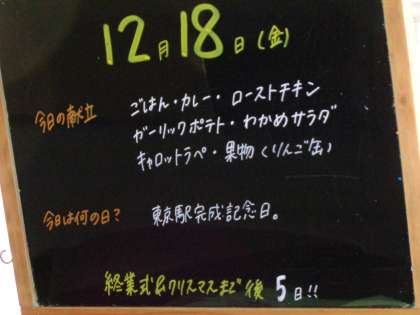 12月18日(金)
今日の献立 ごはん・カレー・ローストチキン
ガーリックポテト・わかめサラダ
キャロットラペ・果物(りんご缶)
今日は何の日? 東京駅完成記念日。
終業式&クリスマスまで後5日!!